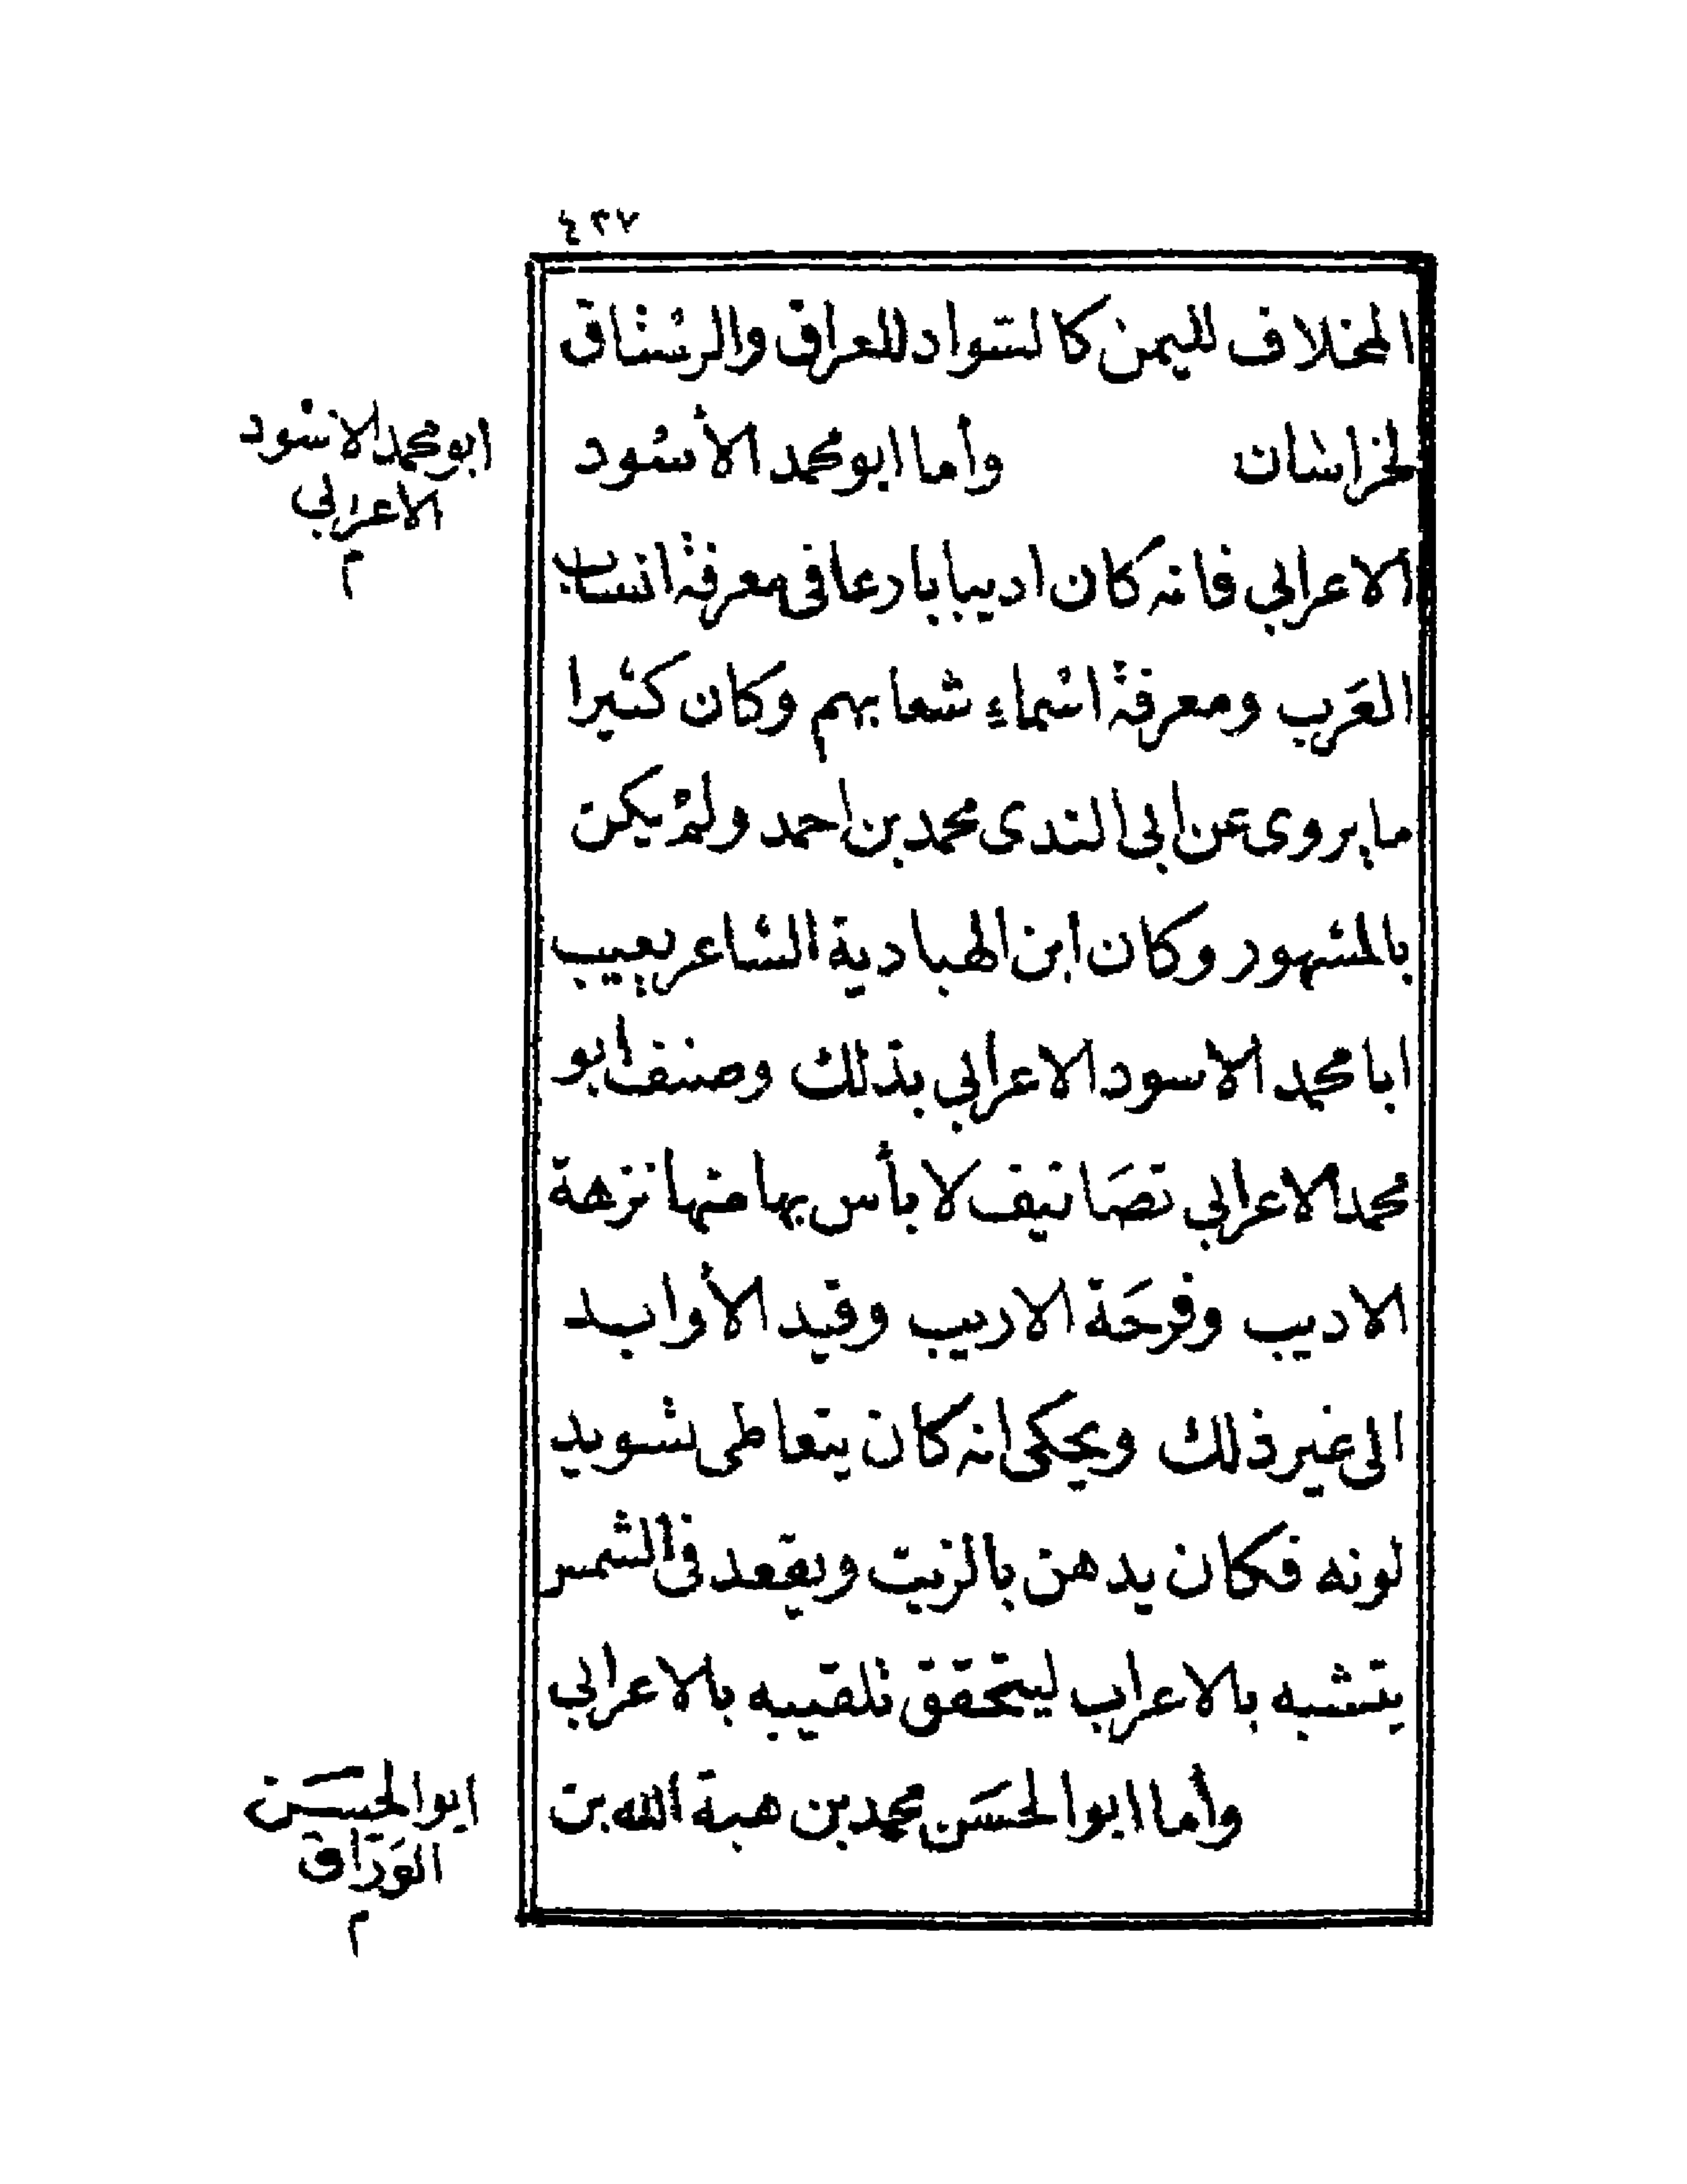 ٤٢٧
المخلاف لليمن كالسواد للعراق والرستاق
لخراسان وأما ابو محمد الأسود
ابو محمد الاسود
الاعرابي
م
الاعرابي فانه كان اديبا بارعا فى معرفة انساب
العَرب ومعرفة اسماء شعابهم وكان كثيرا
ما يروى عن ابى الندى محمد بن احمد ولم يكن
بالمشهور وكان ابن الهبادية الشاعر يعيب
ابا محمد الاسود الاعرابي بذلك وصنف ابو
محمد الاعرابي تصَانيف لا بأس بها منها نزهة
الاديب وفرحَة الاريب وقيد الأوابد
الى غير ذلك ويحكى انه كان يتعاطى تسويد
لونه فكان يدهن بالزيت ويقعد فى الشمس
يتشبه بالاعراب ليتحقق تلقيبه بالاعرابي
وأما ابوا الحسَن محمد بن هبة الله بن
ابوا الحسَن
الوَرّاق
م